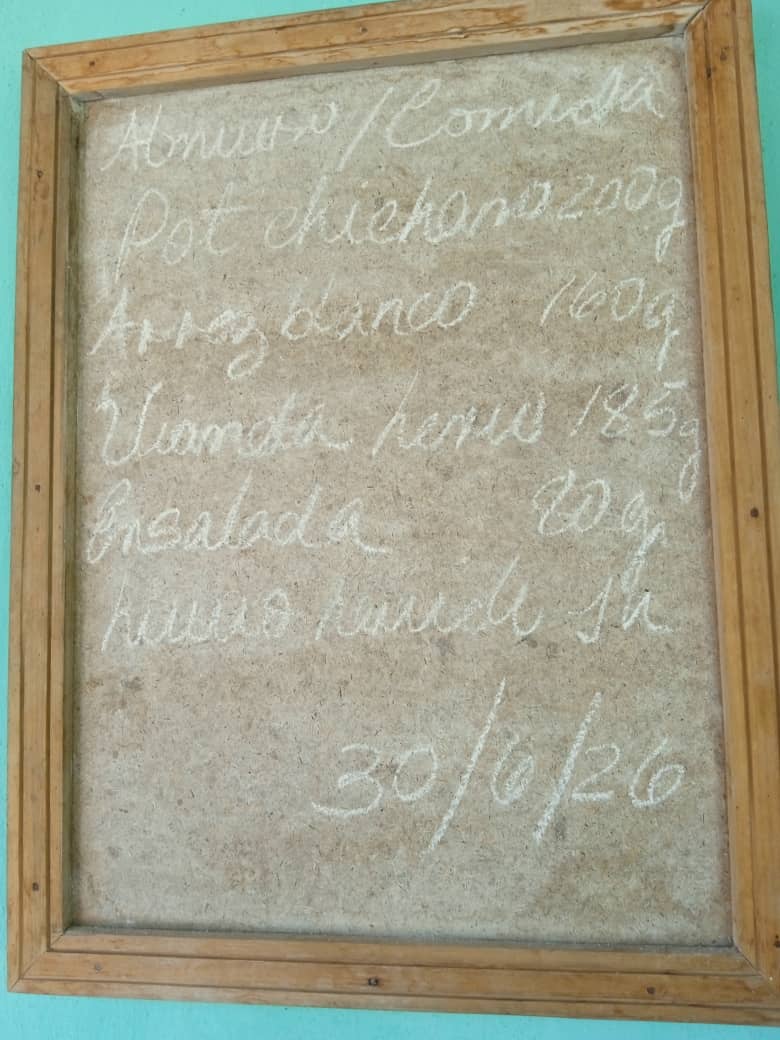 Almuerzo / Comida
Pot chicharo 200g
Arroz blanco 160g
Vianda hervid 185g
Ensalada 90g
huevo hervido 1u
30/6/26